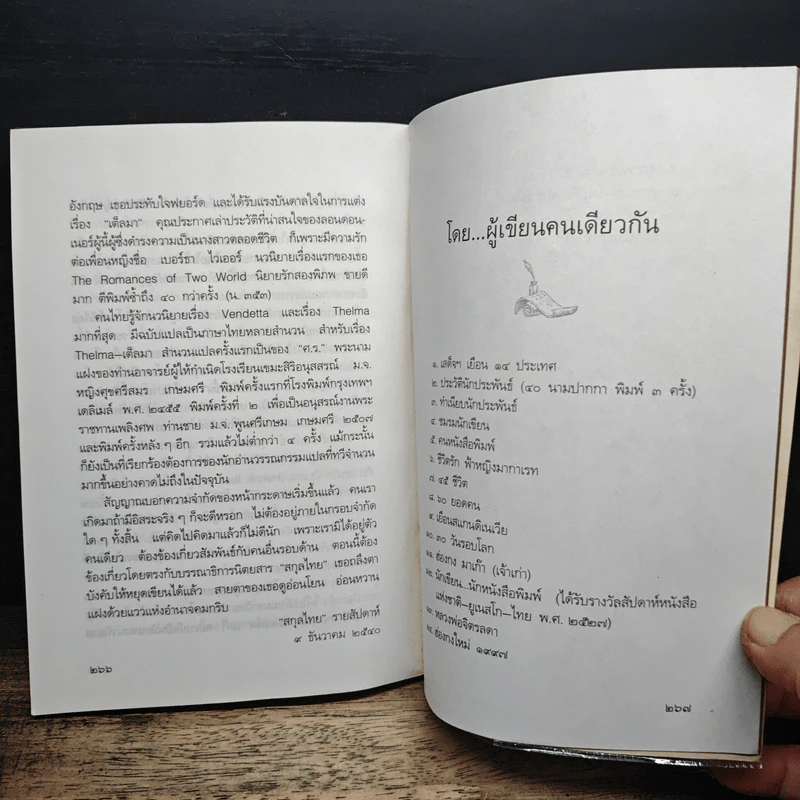 อังกฤษ เธอประทับใจฟยอร์ด และได้รับแรงบันดาลใจในการแต่ง
เรื่อง "เต็ลมา" คุณประกาศเล่าประวัติที่น่าสนใจของลอนดอน-
เนอร์ผู้นี้ผู้ซึ่งดำรงความเป็นนางสาวตลอดชีวิต ก็เพราะมีความรัก
ต่อเพื่อนหญิงชื่อ เบอร์ธา ไวเออร์ นวนิยายเรื่องแรกของเธอ
The Romances of Two World นิยายรักสองพิภพ ขายดี
มาก ตีพิมพ์ซ้ำถึง ๔๐ กว่าครั้ง (น. ๓๕๓)
คนไทยรู้จักนวนิยายเรื่อง Vendetta และเรื่อง Thelma
มากที่สุด มีฉบับแปลเป็นภาษาไทยหลายสำนวน สำหรับเรื่อง
Thelma—เต็ลมา สำนวนแปลครั้งแรกเป็นของ "ศ.ร." พระนาม
แฝงของท่านอาจารย์ผู้ให้กำเนิดโรงเรียนเขมะสิริอนุสสรณ์ ม.จ.
หญิงศุขศรีสมร เกษมศรี พิมพ์ครั้งแรกที่โรงพิมพ์กรุงเทพฯ
เดลิเมล์ พ.ศ. ๒๔๕๕ พิมพ์ครั้งที่ ๒ เพื่อเป็นอนุสรณ์งานพระ
ราชทานเพลิงศพ ท่านชาย ม.จ. พูนศรีเกษม เกษมศรี ๒๕๐๗
และพิมพ์ครั้งหลัง ๆ อีก รวมแล้วไม่ต่ำกว่า ๔ ครั้ง แม้กระนั้น
ก็ยังเป็นที่เรียกร้องต้องการของนักอ่านวรรณกรรมแปลที่ทวีจำนวน
มากขึ้นอย่างคาดไม่ถึงในปัจจุบัน
สัญญาณบอกความจำกัดของหน้ากระดาษเริ่มขึ้นแล้ว คนเรา
เกิดมาถ้ามีอิสระจริง ๆ ก็จะดีหรอก ไม่ต้องอยู่ภายในกรอบจำกัด
ใด ๆ ทั้งสิ้น แต่คิดไปคิดมาแล้วก็ไม่ดีนัก เพราะเรามิได้อยู่ตัว
คนเดียว ต้องข้องเกี่ยวสัมพันธ์กับคนอื่นรอบด้าน ตอนนี้ต้อง
ข้องเกี่ยวโดยตรงกับบรรณาธิการนิตยสาร "สกุลไทย" เธอถลึงตา
บังคับให้หยุดเขียนได้แล้ว สายตาของเธอดูอ่อนโยน อ่อนหวาน
แฝงด้วยแววแห่งอำนาจคมกริบ
"สกุลไทย" รายสัปดาห์
๙ ธันวาคม ๒๕๔๐
๒๖๖
โดย...ผู้เขียนคนเดียวกัน
๑. เสด็จฯ เยือน ๑๔ ประเทศ
๒. ประวัตินักประพันธ์ (๔๐ นามปากกา พิมพ์ ๓ ครั้ง)
๓. ทำเนียบนักประพันธ์
๔. ชมรมนักเขียน
๕. คนหนังสือพิมพ์
๖. ชีวิตรัก ฟ้าหญิงมากาเรท
๗. ๔๕ ชีวิต
๘. ๖๐ ยอดคน
๙. เยือนสแกนดิเนเวีย
๑๐. ๓๐ วันรอบโลก
๑๑. ฮ่องกง มาเก๊า (เจ้าเก่า)
๑๒. นักเขียน..นักหนังสือพิมพ์ (ได้รับรางวัลสัปดาห์หนังสือ
แห่งชาติ-ยูเนสโก-ไทย พ.ศ. ๒๕๒๗)
๑๓. หลวงพ่อจิตรลดา
๑๔. ฮ่องกงใหม่ ๑๙๙๗
๒๖๗